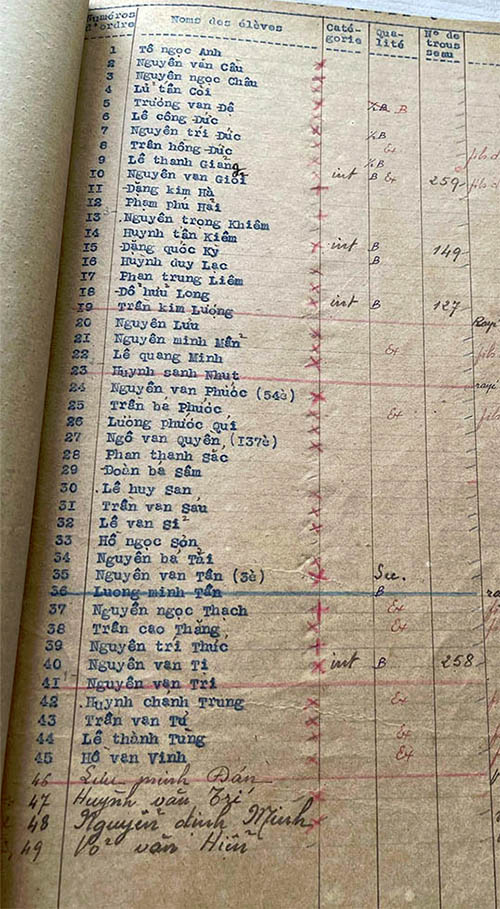 Numéros d'ordre Noms des élèves Caté-gorie Qua-lité N° de trous seau
1 Tô ngọc Anh
2 Nguyễn văn Câu
3 Nguyễn ngọc Châu
4 Lử tấn Còi
5 Trương van Đề ½B B
6 Lê công Đức
7 Nguyễn tri Đức ½B
8 Trần hồng Đức Ex
9 Lê thanh Giảng ½B
10 Nguyễn van Giỏi int B Ex 259 fils
11 Đặng kim Hà
12 Phạm phú Hải
13 Nguyễn trọng Khiêm
14 Huỳnh tấn Kiểm
15 Đặng quốc Kỳ int B 149
16 Huỳnh duy Lạc B
17 Phan trung Liêm
18 Đỗ hữu Long
19 Trần kim Lượng int B 127
20 Nguyễn Lưu Rayé
21 Nguyễn minh Mẫn
22 Lê quang Minh Ex fils
23 Huỳnh sanh Nhut
24 Nguyễn van Phước (54è) rayé
25 Trần bá Phước Ex
26 Lương phước Qui
27 Ngô van Quyên (137è)
28 Phan thanh Sắc
29 Đoàn bá Sâm
30 Lê huy San
31 Trần van Sáu
32 Lê van Sĩ
33 Hồ ngọc Sơn
34 Nguyễn bá Tài
35 Nguyễn van Tấn (3è) Sec.
36 Lương minh Tấn B
37 Nguyễn ngọc Thạch Ex
38 Trần cao Thắng Ex
39 Nguyễn tri Thức
40 Nguyễn van Ti int B 258
41 Nguyễn van Tri
42 Huỳnh chánh Trung Ex
43 Trần van Tư
44 Lê thành Tùng Ex
45 Hồ van Vinh Ex
46 Lưu minh Đán
47 Huỳnh văn Trí
48 Nguyễn đình Minh
49 Võ văn Hiển